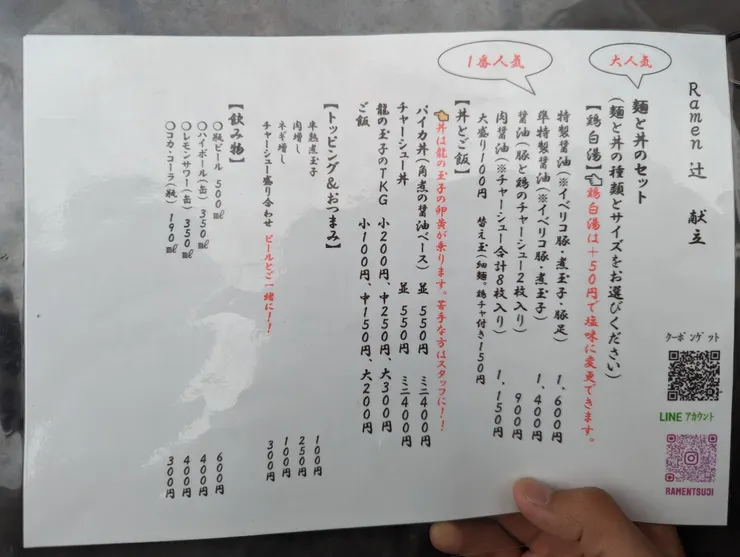 Ramen 辻 献立
クーポンゲット
LINE アカウント
RAMENTSUJI
大人気
麺と丼のセット
(麺と丼の種類とサイズをお選びください)
【鶏白湯】👈鶏白湯は+50円で塩味に変更できます。
1番人気
特製醤油(※イベリコ豚・煮玉子・豚足) 1,600円
準特製醤油(※イベリコ豚・煮玉子) 1,400円
醤油(豚と鶏のチャーシュー2枚入り) 900円
肉醤油(※チャーシュー合計8枚入り) 1,150円
大盛り100円 替え玉(細麺。鶏チャ付き150円
【丼とご飯】
👈丼は龍の玉子の卵黄が乗ります。苦手な方はスタッフに!!
パイカ丼(角煮の醤油ベース) 並 550円 ミニ400円
チャーシュー丼 並 550円 ミニ400円
龍の玉子のTKG 小200円、中250円、大300円
ご飯 小100円、中150円、大200円
【トッピング&おつまみ】
半熟煮玉子 100円
肉増し 250円
ネギ増し 100円
チャーシュー盛り合わせ ビールとご一緒に!! 300円
【飲み物】
○瓶ビール 500㎖ 600円
○ハイボール(缶) 350㎖ 400円
○レモンサワー(缶) 350㎖ 400円
○コカ・コーラ(瓶) 190㎖ 300円